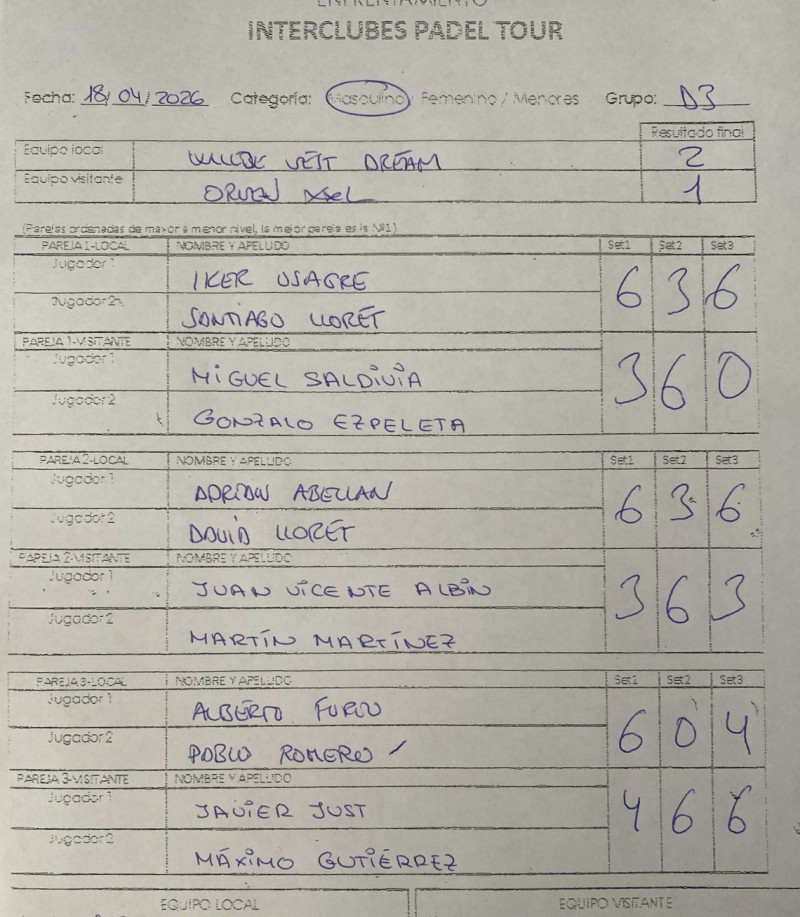 ENFRENTAMIENTO
INTERCLUBES PADEL TOUR
Fecha: 18/04/2026 Categoría: Masculino / Femenino / Menores Grupo: D3
Resultado final
Equipo local VEST DREAM 2
Equipo visitante 1
(Parejas ordenadas de mayor a menor nivel, la mejor pareja es la Nº1)
PAREJA 1-LOCAL NOMBRE Y APELLIDO Set1 Set2 Set3
Jugador 1 IKER USAGRE
Jugador 2 SANTIAGO LLORET
6 3 6
PAREJA 1-VISITANTE NOMBRE Y APELLIDO
Jugador 1 MIGUEL SALDIVIA
Jugador 2 GONZALO EZPELETA
3 6 0
PAREJA 2-LOCAL NOMBRE Y APELLIDO Set1 Set2 Set3
Jugador 1 ADRIAN ABELLAN
Jugador 2 DAVID LLORET
6 3 6
PAREJA 2-VISITANTE NOMBRE Y APELLIDO
Jugador 1 JUAN VICENTE ALBIN
Jugador 2 MARTÍN MARTÍNEZ
3 6 3
PAREJA 3-LOCAL NOMBRE Y APELLIDO Set1 Set2 Set3
Jugador 1 ALBERTO
Jugador 2 PABLO ROMERO
6 0 4
PAREJA 3-VISITANTE NOMBRE Y APELLIDO
Jugador 1 JAVIER JUST
Jugador 2 MÁXIMO GUTIÉRREZ
4 6 6
EQUIPO LOCAL EQUIPO VISITANTE